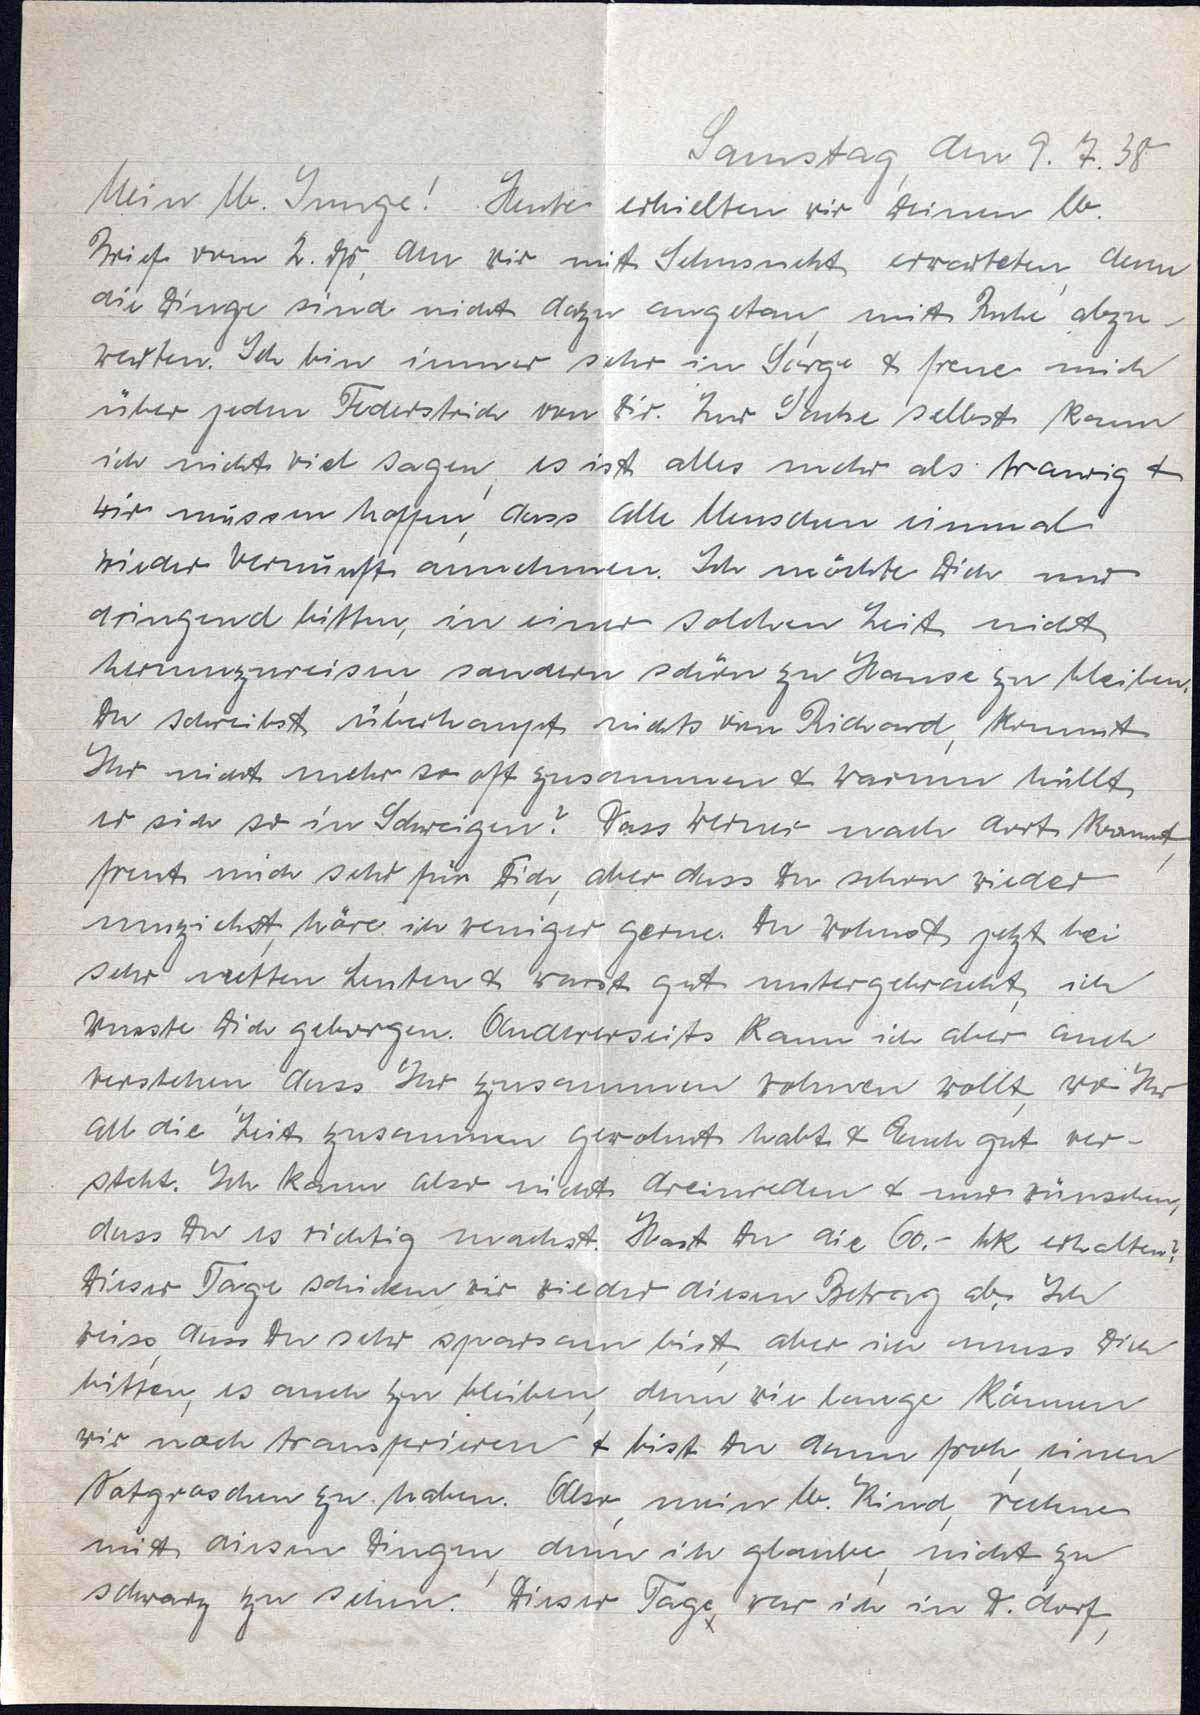 Samstag, den 9. 7. 38
Mein lb. Junge! Heute erhielten wir Deinen lb.
Brief vom 2. ds, den wir mit Sehnsucht erwarteten, denn
die Dinge sind nicht dazu angetan, mit Ruhe abzu-
warten. Ich bin immer sehr in Sorge & freue mich
über jeden Federstrich von Dir. Zur Sache selbst kann
ich nicht viel sagen, es ist alles mehr als traurig &
wir müssen hoffen, dass alle Menschen einmal
wieder Vernunft annehmen. Ich möchte Dich nur
dringend bitten, in einer solchen Zeit nicht
herumzureisen, sondern schön zu Hause zu bleiben.
Du schreibst überhaupt nichts von Richard, kommt
Ihr nicht mehr so oft zusammen & warum hüllt
er sich so in Schweigen? Dass Werner nach dort kommt,
freut mich sehr für Dich, aber dass Du schon wieder
umziehst, höre ich weniger gerne. Du wohnst jetzt bei
sehr netten Leuten & warst gut untergebracht, ich
wusste Dich geborgen. Andererseits kann ich aber auch
verstehen, dass Ihr zusammen wohnen wollt, wo Ihr
all die Zeit zusammen gewohnt habt & Euch gut ver-
steht. Ich kann also nicht dreinreden & nur wünschen,
dass Du es richtig machst. Hast Du die 60.- Mk erhalten?
Dieser Tage schicken wir wieder diesen Betrag ab. Ich
weiss, dass Du sehr sparsam bist, aber ich muss Dich
bitten, es auch zu bleiben, denn wie lange können
wir noch transferieren & bist Du dann froh, einen
Notgroschen zu haben. Also, mein lb. Kind, rechne
mit diesen Dingen, denn ich glaube, nicht zu
schwarz zu sehen. Dieser Tage war ich in D.dorf,